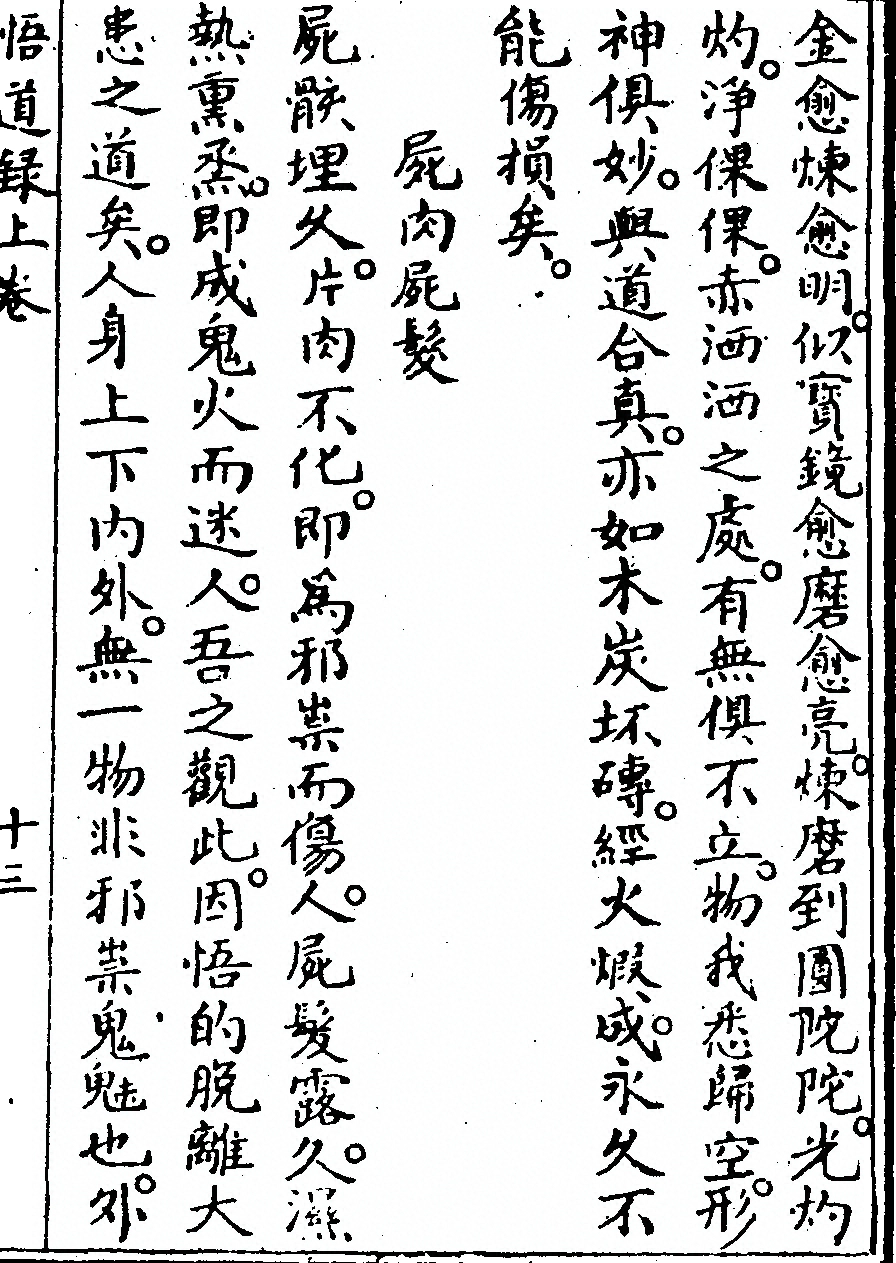 金愈煉愈明。似寳鏡愈磨愈亮。煉磨到團陀陀。光灼
灼。淨倮倮。赤洒洒之處。有無俱不立。物我悉歸空。形
神俱妙。與道合真。亦如木炭坏磚。經火煆成。永久不
能傷損矣。
屍肉屍髮
屍骸埋久。片肉不化。即為邪祟而傷人。屍髮露久。濕
熱熏烝。即成鬼火而迷人。吾之觀此。因悟的脫離大
患之道矣。人身上下内外。無一物非邪祟鬼魅也。外
悟道録上卷
十三